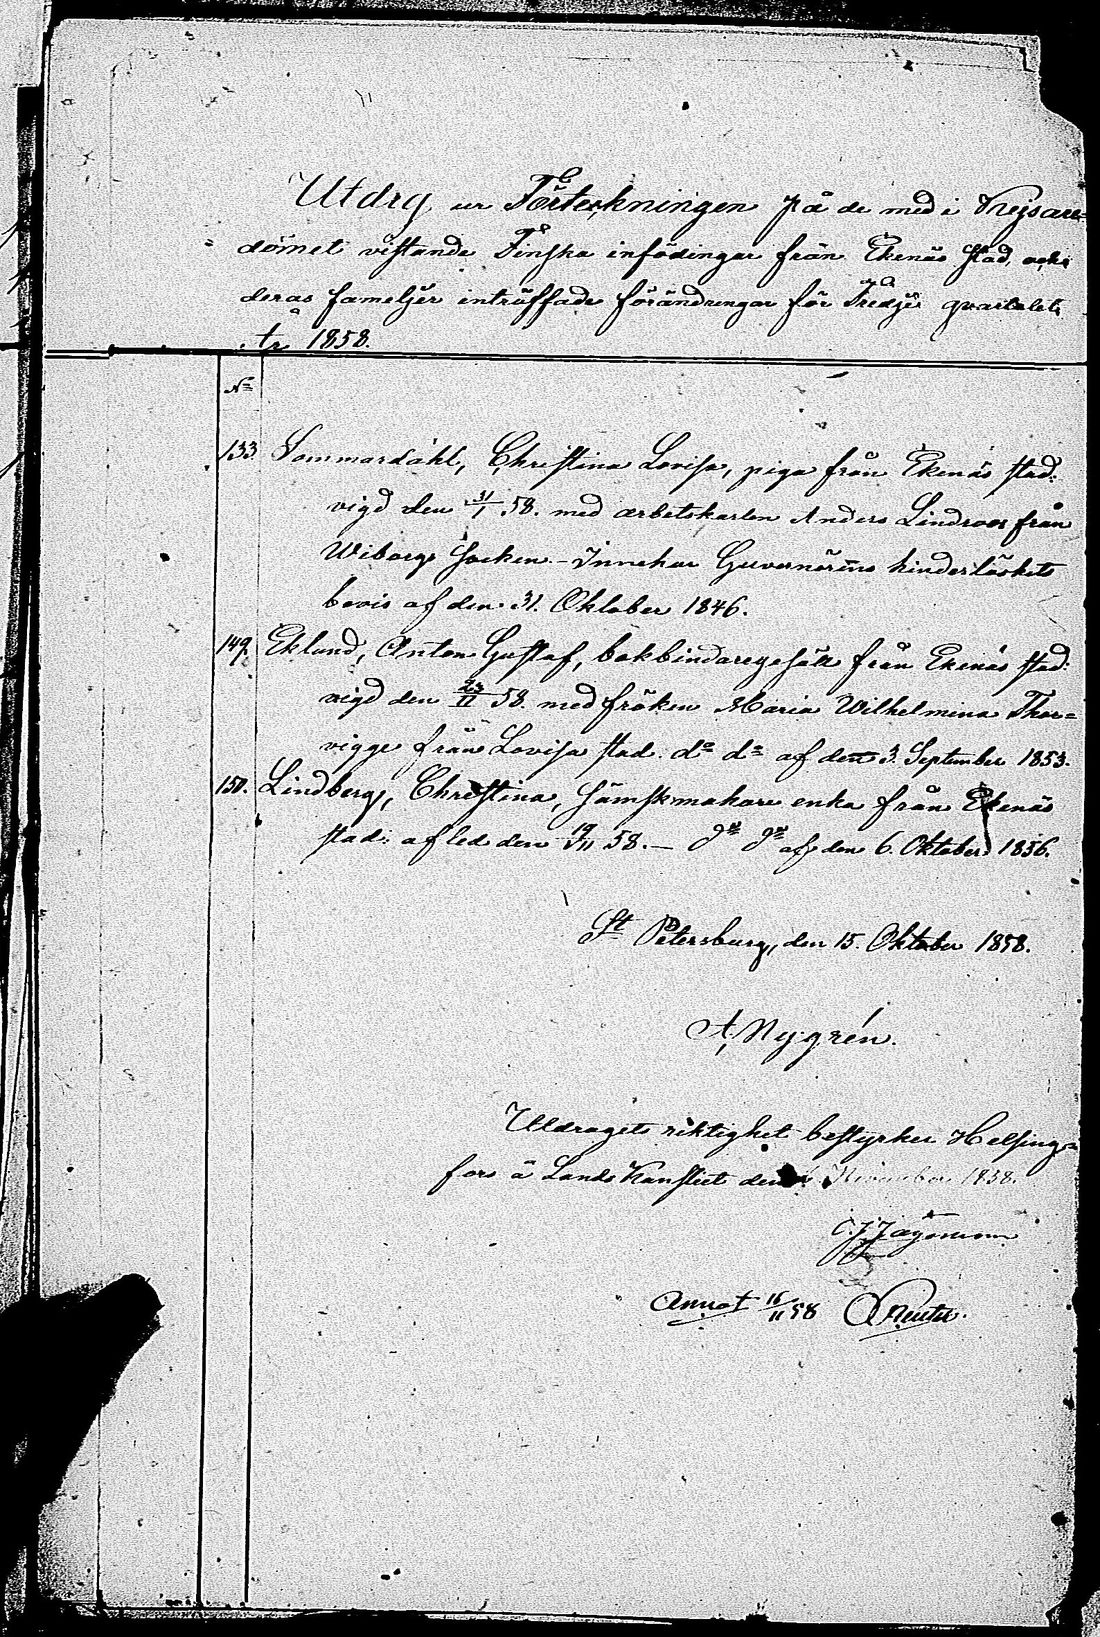 Utdrg ur Förteckningen på de med i Kejsare=
dömet vistande Finska infödingar från Ekenäs stad och i
deras familjer inträffade förändringar för Tredje qvartalet
år 1858.
No
133. Sommardahl, Christina Lovisa, piga från Ekenäs stad:
vigd den 31/1 58. med arbetskarlen Anders Lindroos från
Wiborgs Socken. - Innehar Guvernörens hinderlöshets
bevis af den 31. Oktober 1846.
149. Eklund, Anton Gustaf, bokbindaregesäll från Ekenäs stad:
vigd den 23/II 58. med fröken Maria Wilhelmina Thor=
vigge från Lovisa stad. do do af den 3. September 1853.
150. Lindberg, Christina, Sämskmakare enka från Ekenäs
stad: afled den 19/II 58. - do do af den 6. Oktober 1856.
St Petersburg, den 15. Oktober 1858.
A. Nygrén.
Utdragets riktighet bestyrker Helsing=
fors å Lands Kansliet den November 1858.
C. J. Jägerhorn
Annot 16/11 58